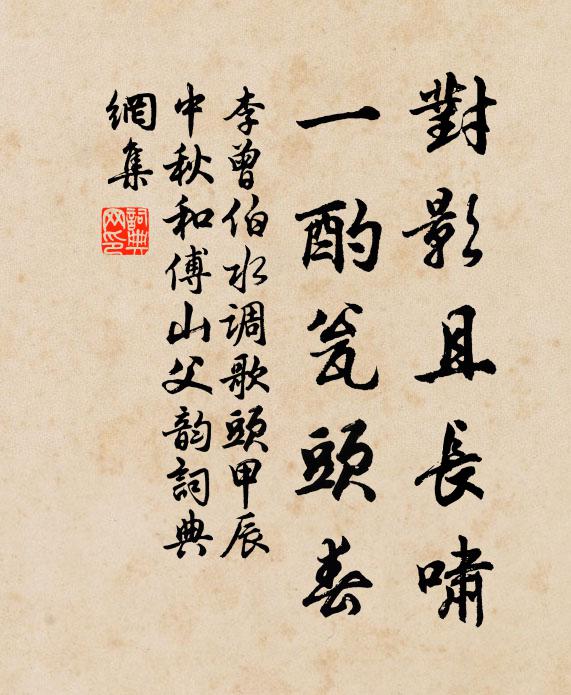 對影且長嘯
一酌瓮頭春
李曾伯水调歌頭甲辰
中秋和傅山父韵詞典
網集
詞典网印